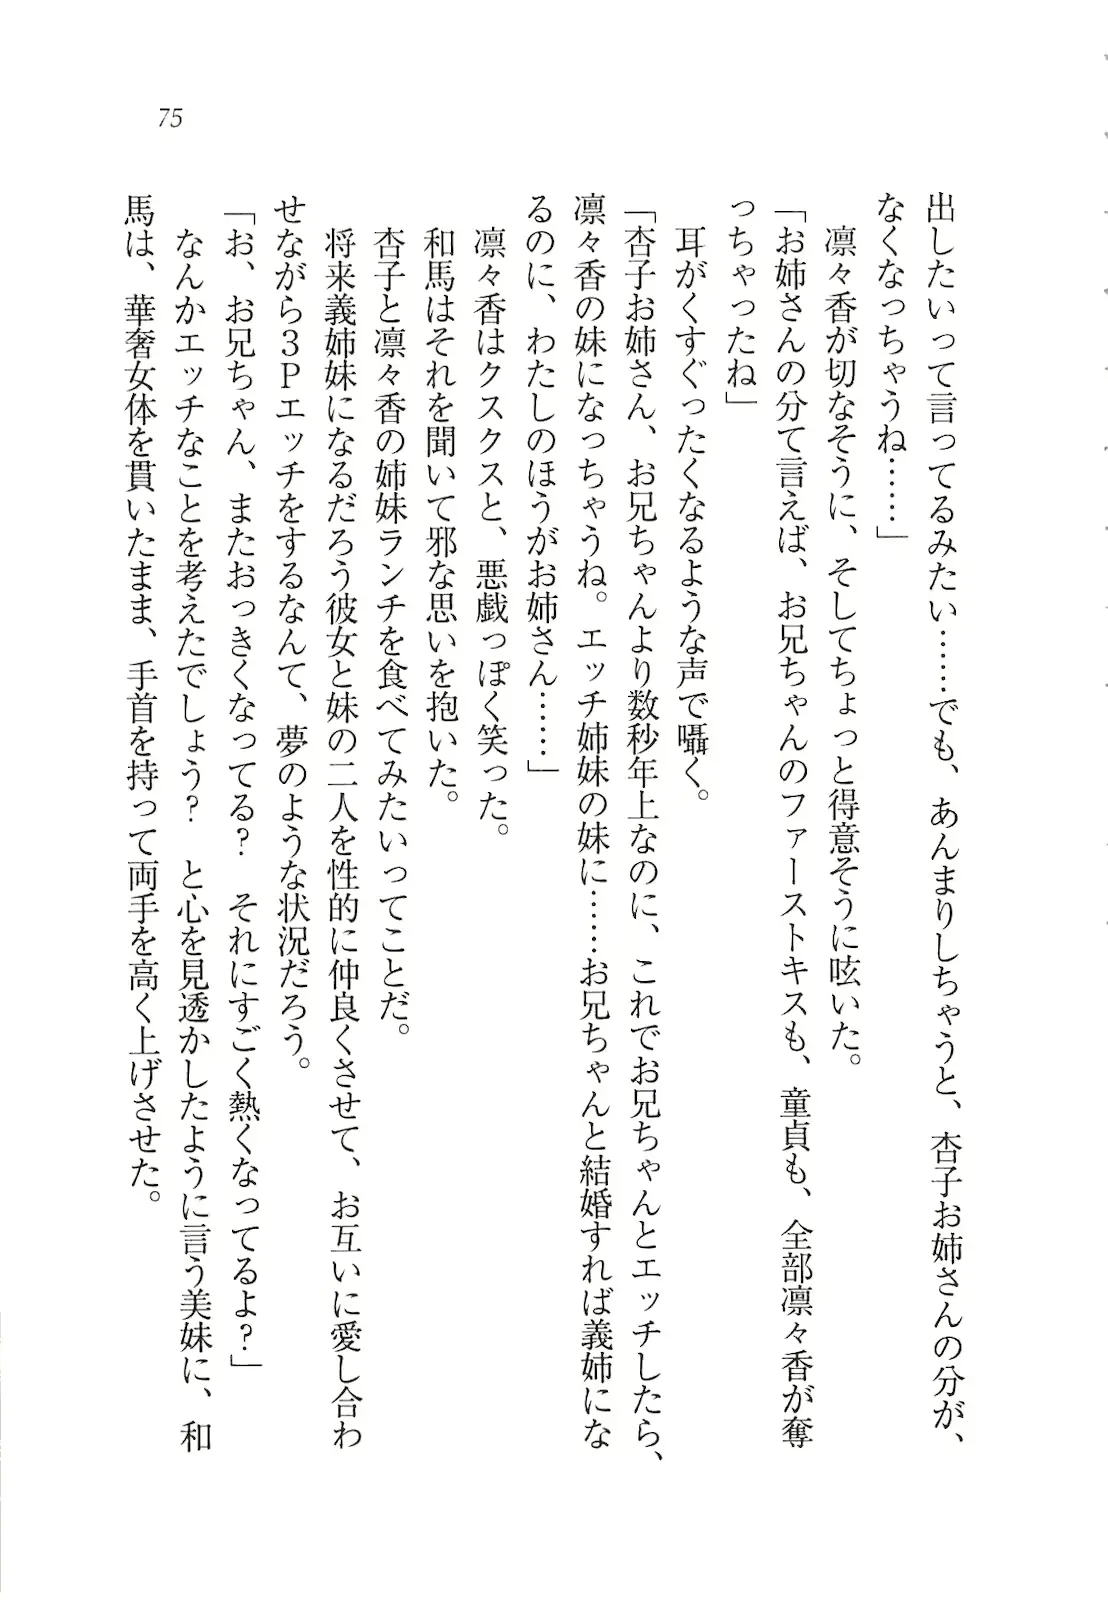 75
出したいって言ってるみたい……でも、あんまりしちゃうと、杏子お姉さんの分が、
なくなっちゃうね……」
凛々香が切なそうに、そしてちょっと得意そうに呟いた。
「お姉さんの分て言えば、お兄ちゃんのファーストキスも、童貞も、全部凛々香が奪
っちゃったね」
耳がくすぐったくなるような声で囁く。
「杏子お姉さん、お兄ちゃんより数秒年上なのに、これでお兄ちゃんとエッチしたら、
凛々香の妹になっちゃうね。エッチ姉妹の妹に……お兄ちゃんと結婚すれば義姉にな
るのに、わたしのほうがお姉さん……」
凛々香はクスクスと、悪戯っぽく笑った。
和馬はそれを聞いて邪な思いを抱いた。
杏子と凛々香の姉妹ランチを食べてみたいってことだ。
将来義姉妹になるだろう彼女と妹の二人を性的に仲良くさせて、お互いに愛し合わ
せながら3Pエッチをするなんて、夢のような状況だろう。
「お、お兄ちゃん、またおっきくなってる？　それにすごく熱くなってるよ？」
なんかエッチなことを考えたでしょう？　と心を見透かしたように言う美妹に、和
馬は、華奢女体を貫いたまま、手首を持って両手を高く上げさせた。